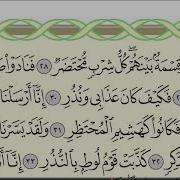 قِسْمَةٌ بَيْنَهُمْ ۖ كُلُّ شِرْبٍ مُّحْتَضَرٌ ٢٨ فَنَادَوْا
فَكَيْفَ كَانَ عَذَابِي وَنُذُرِ ٣٠ إِنَّا أَرْسَلْنَا
فَكَانُوا كَهَشِيمِ الْمُحْتَظِرِ ٣١ وَلَقَدْ يَسَّرْنَا
٣٢ كَذَّبَتْ قَوْمُ لُوطٍ بِالنُّذُرِ ٣٣ إِنَّا